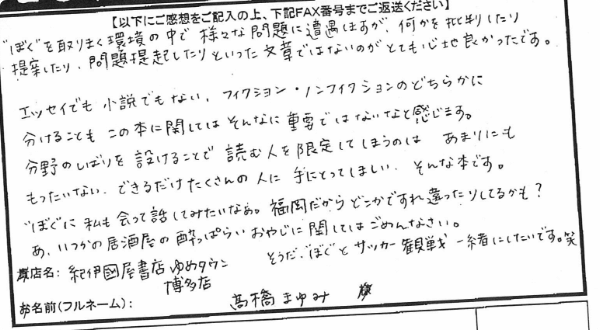 【以下にご感想をご記入の上、下記FAX番号までご返送ください】
"ぼく"を取りまく環境の中で様々な問題に遭遇しますが、何かを批判したり
提案したり、問題提起したりといった文章ではないのがとても心地良かったです。
エッセイでも小説でもない、フィクション・ノンフィクションのどちらかに
分けることもこの本に関してはそんなに重要ではないなと感じます。
分野のしばりを設けることで読む人を限定してしまうのはあまりにも
もったいない、できるだけたくさんの人に手にとってほしい、そんな本です。
"ぼく"に私も会って話してみたいなぁ。福岡だからどこかですれ違ったりしてるかも?
あ、いつかの居酒屋の酔っぱらいおやじに関してはごめんなさい。
そうだ、"ぼく"とサッカー観戦一緒にしたいです。笑
貴店名: 紀伊國屋書店ゆめタウン
博多店
お名前(フルネーム): 高橋まゆみ 様